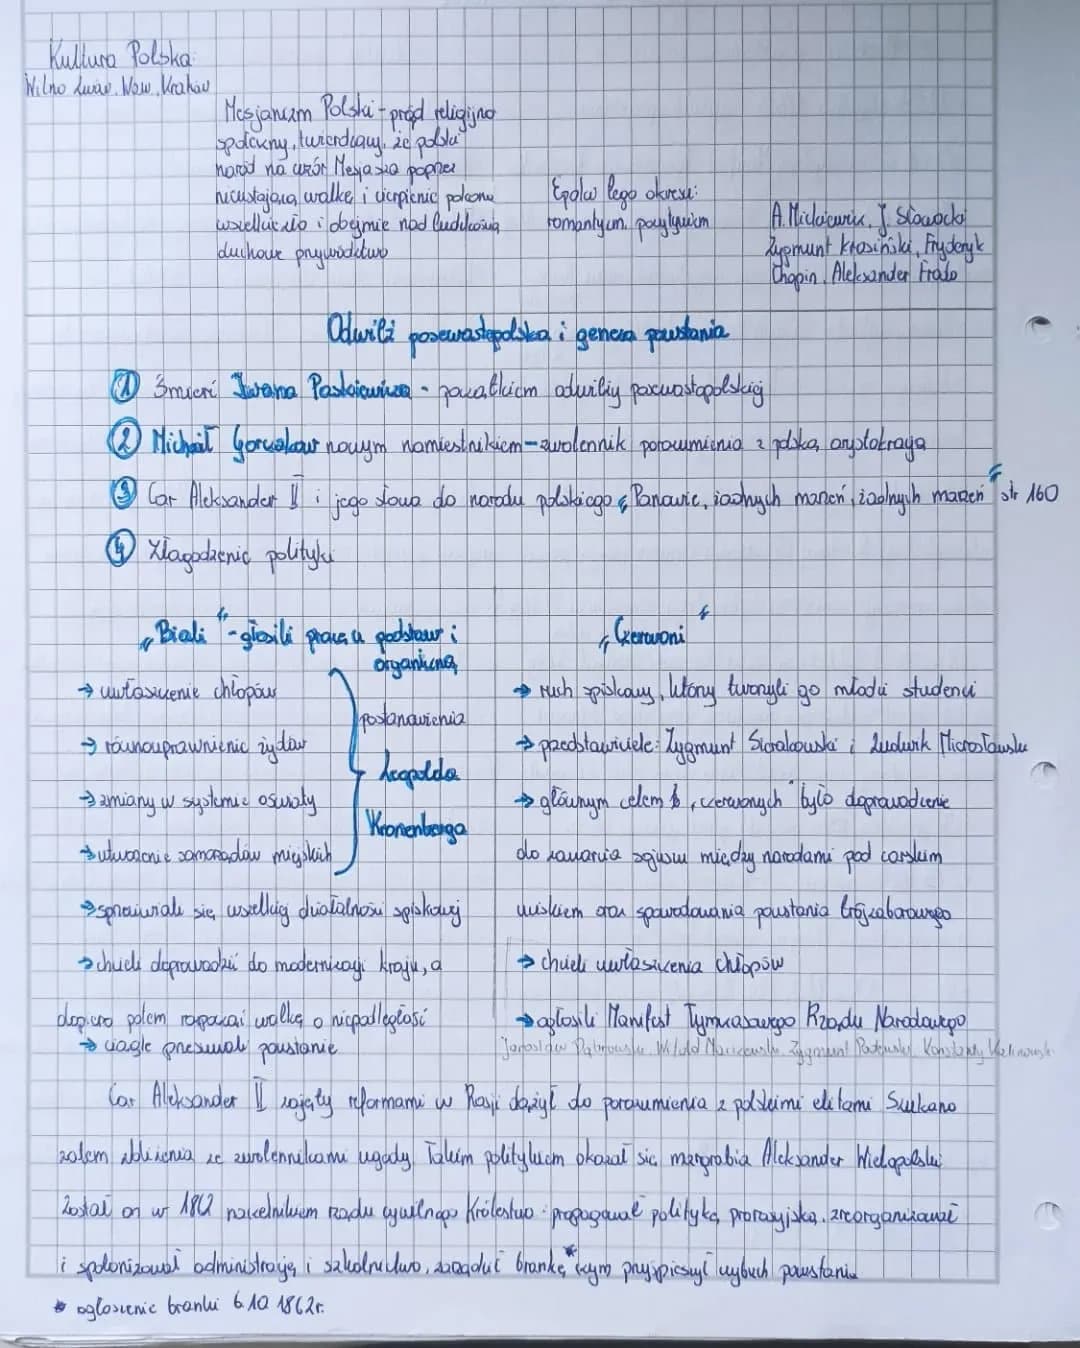 Kultura Polska:
Wilno Lwów, Waw, Kraków
Mesjanizm Polski - prąd religijno
społeczny, twierdzący, że polski
naród na wzór Mesjasza poprzez
nieustającą walkę i cierpienie pokona
wszelkie zło i obejmie nad ludzkością
duchowe przywództwo
Epoka tego okresu:
romantyzm, pozytywizm
A. Mickiewicz, J. Słowacki
Zygmunt Krasiński, Fryderyk
Chopin, Aleksander Fredro
Odwilż posewastopolska i geneza powstania
① Śmierć Iwana Paskiewicza - początkiem odwilży posewastopolskiej
② Michaił Gorczakow nowym namiestnikiem - zwolennik porozumienia z polską arystokracją
③ Car Aleksander II i jego słowa do narodu polskiego „Panowie, żadnych marzeń, żadnych marzeń" str 160
④ Złagodzenie polityki
„Biali" - głosili pracę u podstaw i
organiczną
→ uwłaszczenie chłopów
→ równouprawnienie żydów
→ zmiany w systemie oświaty
→ utworzenie samorządów miejskich
postanowienia
Leopolda
Kronenberga
→ sprzeciwiali się wszelkiej działalności spiskowej
→ chcieli doprowadzić do modernizacji kraju, a
dopiero potem rozpocząć walkę o niepodległość
→ ciągle przesuwali powstanie
„Czerwoni"
→ ruch spiskowy, który tworzyli go młodzi studenci
→ przedstawiciele: Zygmunt Sierakowski i Ludwik Mierosławski
→ głównym celem „czerwonych" było doprowadzenie
do zawarcia sojuszu między narodami pod carskim
uciskiem oraz spowodowania powstania trójzaborowego
→ chcieli uwłaszczenia chłopów
→ ogłosili Manifest Tymczasowego Rządu Narodowego
Jarosław Dąbrowski, Witold Marczewski, Zygmunt Padlewski, Konstanty Kalinowski
Car Aleksander II zajęty reformami w Rosji dążył do porozumienia z polskimi elitami Szukano
zatem zbliżenia ze zwolennikami ugody. Takim politykiem okazał się margrabia Aleksander Wielopolski
Został on w 1862 naczelnikiem rządu cywilnego Królestwa propagował politykę prorosyjską, zreorganizował
i spolonizował administrację i szkolnictwo, zarządził brankę* czym przyspieszył wybuch powstania
* ogłoszenie branki 6.10 1862r.